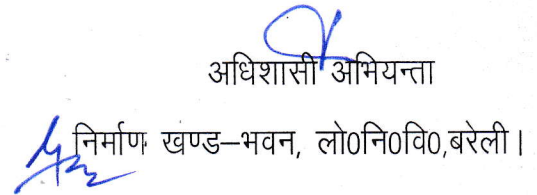 अधिशासी अभियन्ता
निर्माण खण्ड–भवन, लो0नि0वि0,बरेली।